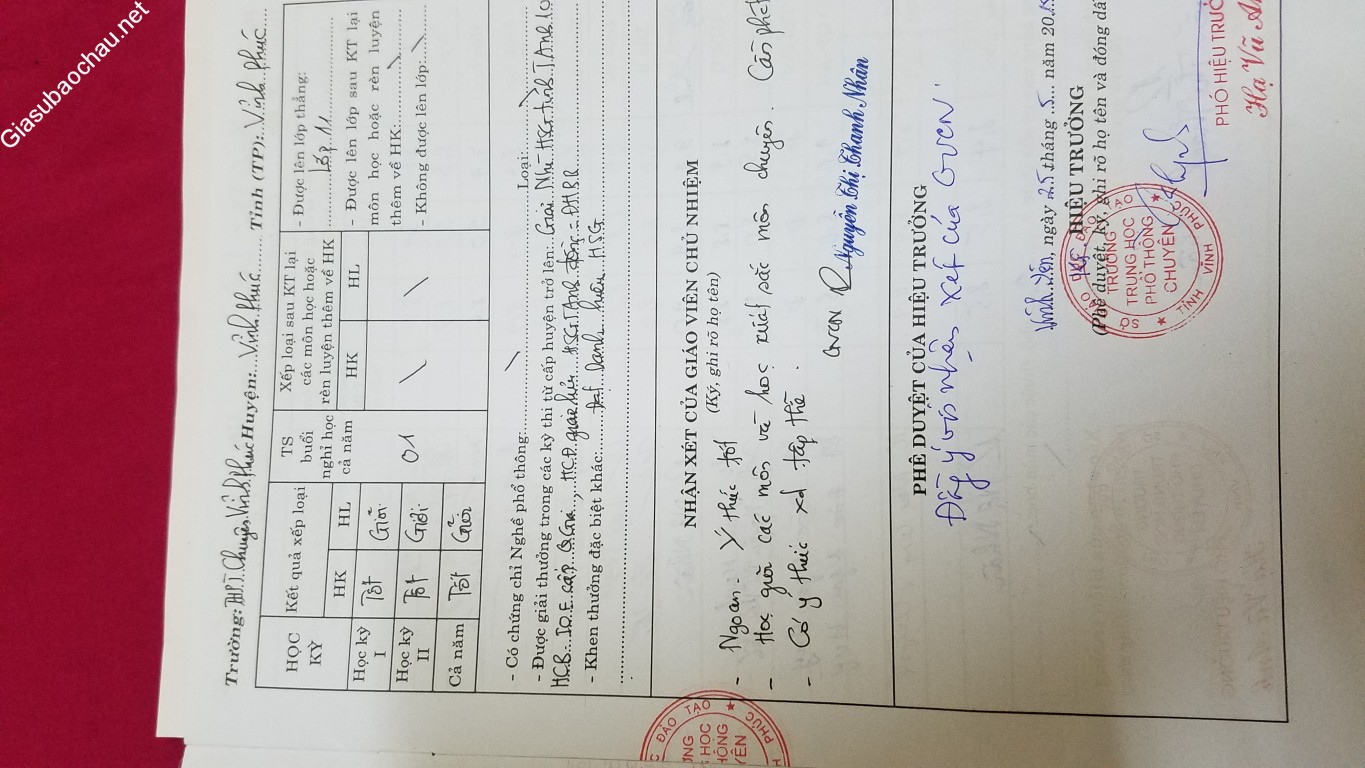 Giasubaochau.net
Trường: THPT Chuyên Vĩnh Phúc Huyện: Vĩnh Phúc Tỉnh (TP): Vĩnh Phúc
HỌC KỲ
Kết quả xếp loại
TS buổi nghỉ học cả năm
Xếp loại sau KT lại các môn học hoặc rèn luyện thêm về HK
HK HL HK HL
Học kỳ I Tốt Giỏi
Học kỳ II Tốt Giỏi 01
Cả năm Tốt Giỏi
- Được lên lớp thẳng:
Lớp 11
- Được lên lớp sau KT lại
môn học hoặc rèn luyện
thêm về HK
- Không được lên lớp:
- Có chứng chỉ Nghề phổ thông: Loại:
- Được giải thưởng trong các kỳ thi từ cấp huyện trở lên: Giải Nhì HSG tỉnh T.Anh 10
HCB IOE cấp QGia, HCĐ HSG T.Anh ĐHBB
- Khen thưởng đặc biệt khác: Đạt danh hiệu HSG
NHẬN XÉT CỦA GIÁO VIÊN CHỦ NHIỆM
(Ký, ghi rõ họ tên)
- Ngoan. Ý thức tốt
- Học giỏi các môn và học xuất sắc môn chuyên. Cần phát
- Có ý thức xd tập thể.
GVCN
Nguyễn Thị Thanh Nhân
PHÊ DUYỆT CỦA HIỆU TRƯỞNG
Đồng ý với nhận xét của GVCN.
Vĩnh Yên, ngày 25 tháng 5 năm 20
HIỆU TRƯỞNG
(Phê duyệt, ký, ghi rõ họ tên và đóng dấ
SỞ GIÁO DỤC ĐÀO TẠO
TRƯỜNG
TRUNG HỌC
PHỔ THÔNG
CHUYÊN
TỈNH VĨNH PHÚC
PHÓ HIỆU TRƯỞ
Hạ Vũ A
C ĐÀO TẠO
NG
HỌC
HÔNG
YÊN
PHÚC